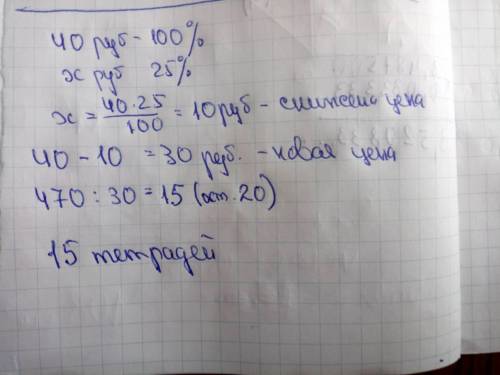 40 руб - 100%
х руб 25%
х = 40·25/100 = 10 руб - снижена цена
40 - 10 = 30 руб. - новая цена
470 : 30 = 15 (ост. 20)
15 тетрадей